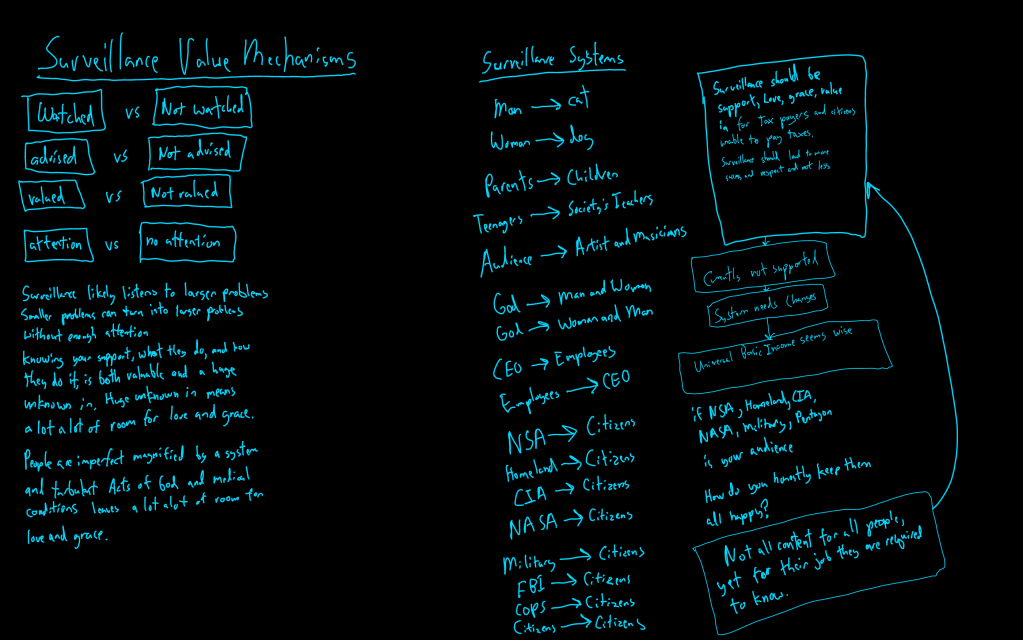 Surveillance Value Mechanisms
Watched vs Not watched
advised vs Not advised
valued vs Not valued
attention vs no attention
Surveillance likely listens to larger problems
Smaller problems can turn into larger problems
without enough attention
Knowing your support, what they do, and how
they do it is both valuable and a huge
unknown in. Huge unknown in means
a lot a lot of room for love and grace.
People are imperfect magnified by a system
and turbulent Acts of God and medical
conditions leaves a lot alot of room for
love and grace.
Surveillance Systems
Man → cat
Woman → dog
Parents → Children
Teenagers → Society's Teachers
Audience → Artist and Musicians
God → Man and Woman
God → Woman and Man
CEO → Employees
Employees → CEO
NSA → Citizens
Homeland → Citizens
CIA → Citizens
NASA → Citizens
Military → Citizens
FBI → Citizens
COPS → Citizens
Citizens → Citizens
Surveillance should be
support, Love, grace, value
in for tax payers and citizens
unable to pay taxes.
Surveillance should lead to more
caring and respect and not less
Currently not supported
System needs changes
Universal Basic Income seems wise
if NSA, Homeland, CIA,
NASA, Military, Pentagon
is your audience
How do you honestly keep them
all happy?
Not all content for all people,
yet for their job they are required
to know.